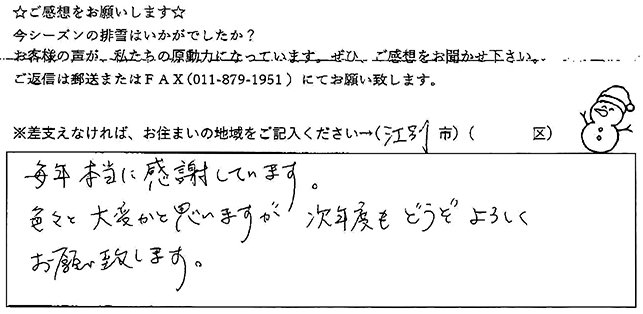 ☆ご感想をお願いします☆
今シーズンの排雪はいかがでしたか？
お客様の声が、私たちの原動力になっています。ぜひ、ご感想をお聞かせ下さい。
ご返信は郵送またはＦＡＸ(011-879-1951）にてお願い致します。
※差支えなければ、お住まいの地域をご記入ください→（江別 市）（ 区）
毎年本当に感謝しています。
色々と大変かと思いますが 次年度もどうぞよろしく
お願い致します。